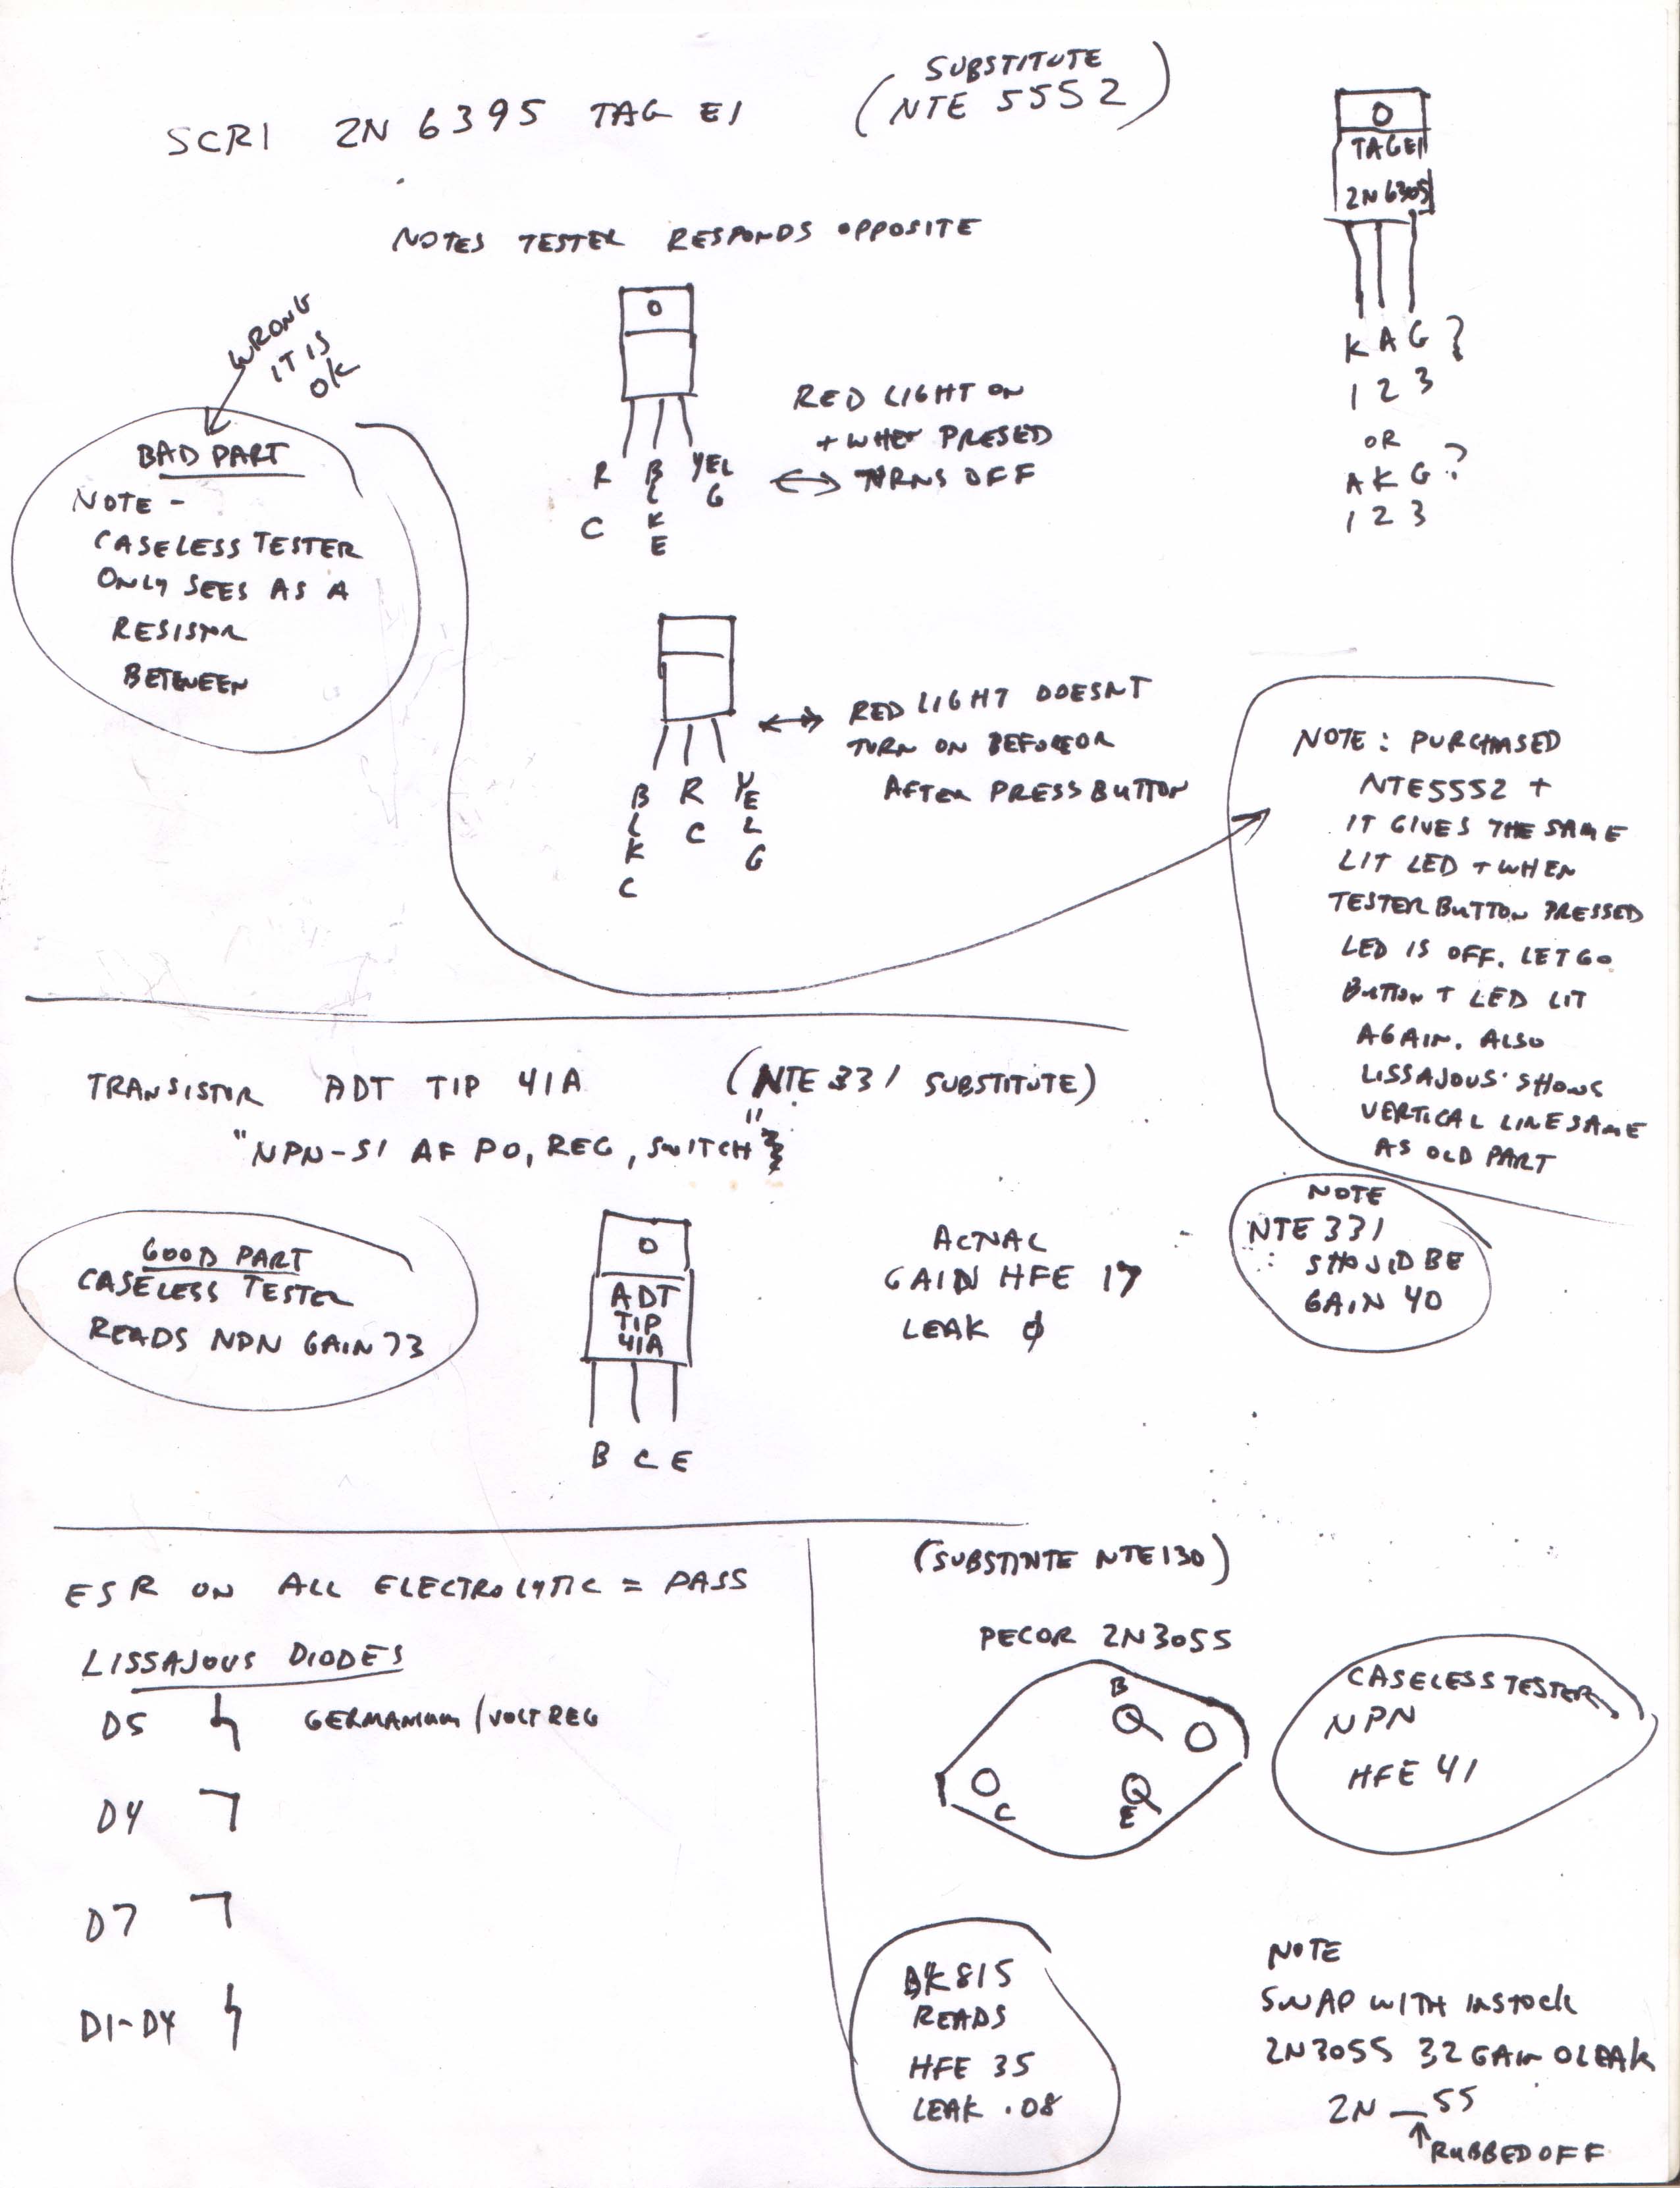 SCR1 2N 6395 TAG E1
(SUBSTITUTE
NTE 5552)
O
TAGE1
2N6305
K A G ?
1 2 3
OR
A K G ?
1 2 3
NOTES TESTER RESPONDS OPPOSITE
O
R BLK YEL
C E G
RED LIGHT ON
+ WHEN PRESED
TURNS OFF
WRONG
IT IS
OK
BAD PART
NOTE -
CASELESS TESTER
ONLY SEES AS A
RESISTOR
BETWEEN
BLK R YEL
C C G
RED LIGHT DOESNT
TURN ON BEFORE OR
AFTER PRESS BUTTON
NOTE: PURCHASED
NTE5552 +
IT GIVES THE SAME
LIT LED + WHEN
TESTER BUTTON PRESSED
LED IS OFF. LET GO
BUTTON + LED LIT
AGAIN. ALSO
LISSAJOUS SHOWS
VERTICAL LINE SAME
AS OLD PART
TRANSISTOR ADT TIP 41A (NTE 331 SUBSTITUTE)
"NPN-SI AF PO, REG, SWITCH"
GOOD PART
CASELESS TESTER
READS NPN GAIN 73
O
ADT
TIP
41A
B C E
ACTUAL
GAIN HFE 17
LEAK ø
NOTE
NTE 331
SHOULD BE
GAIN 40
ESR ON ALL ELECTROLYTIC = PASS
LISSAJOUS DIODES
D5 GERMANIUM / VOLT REG
D4
D7
D1-D4
(SUBSTITUTE NTE130)
PECOR 2N3055
B
C
E
CASELESS TESTER
NPN
HFE 41
BK815
READS
HFE 35
LEAK .08
NOTE
SWAP WITH INSTOCK
2N3055 32 GAIN 0 LEAK
2N __ 55
RUBBED OFF